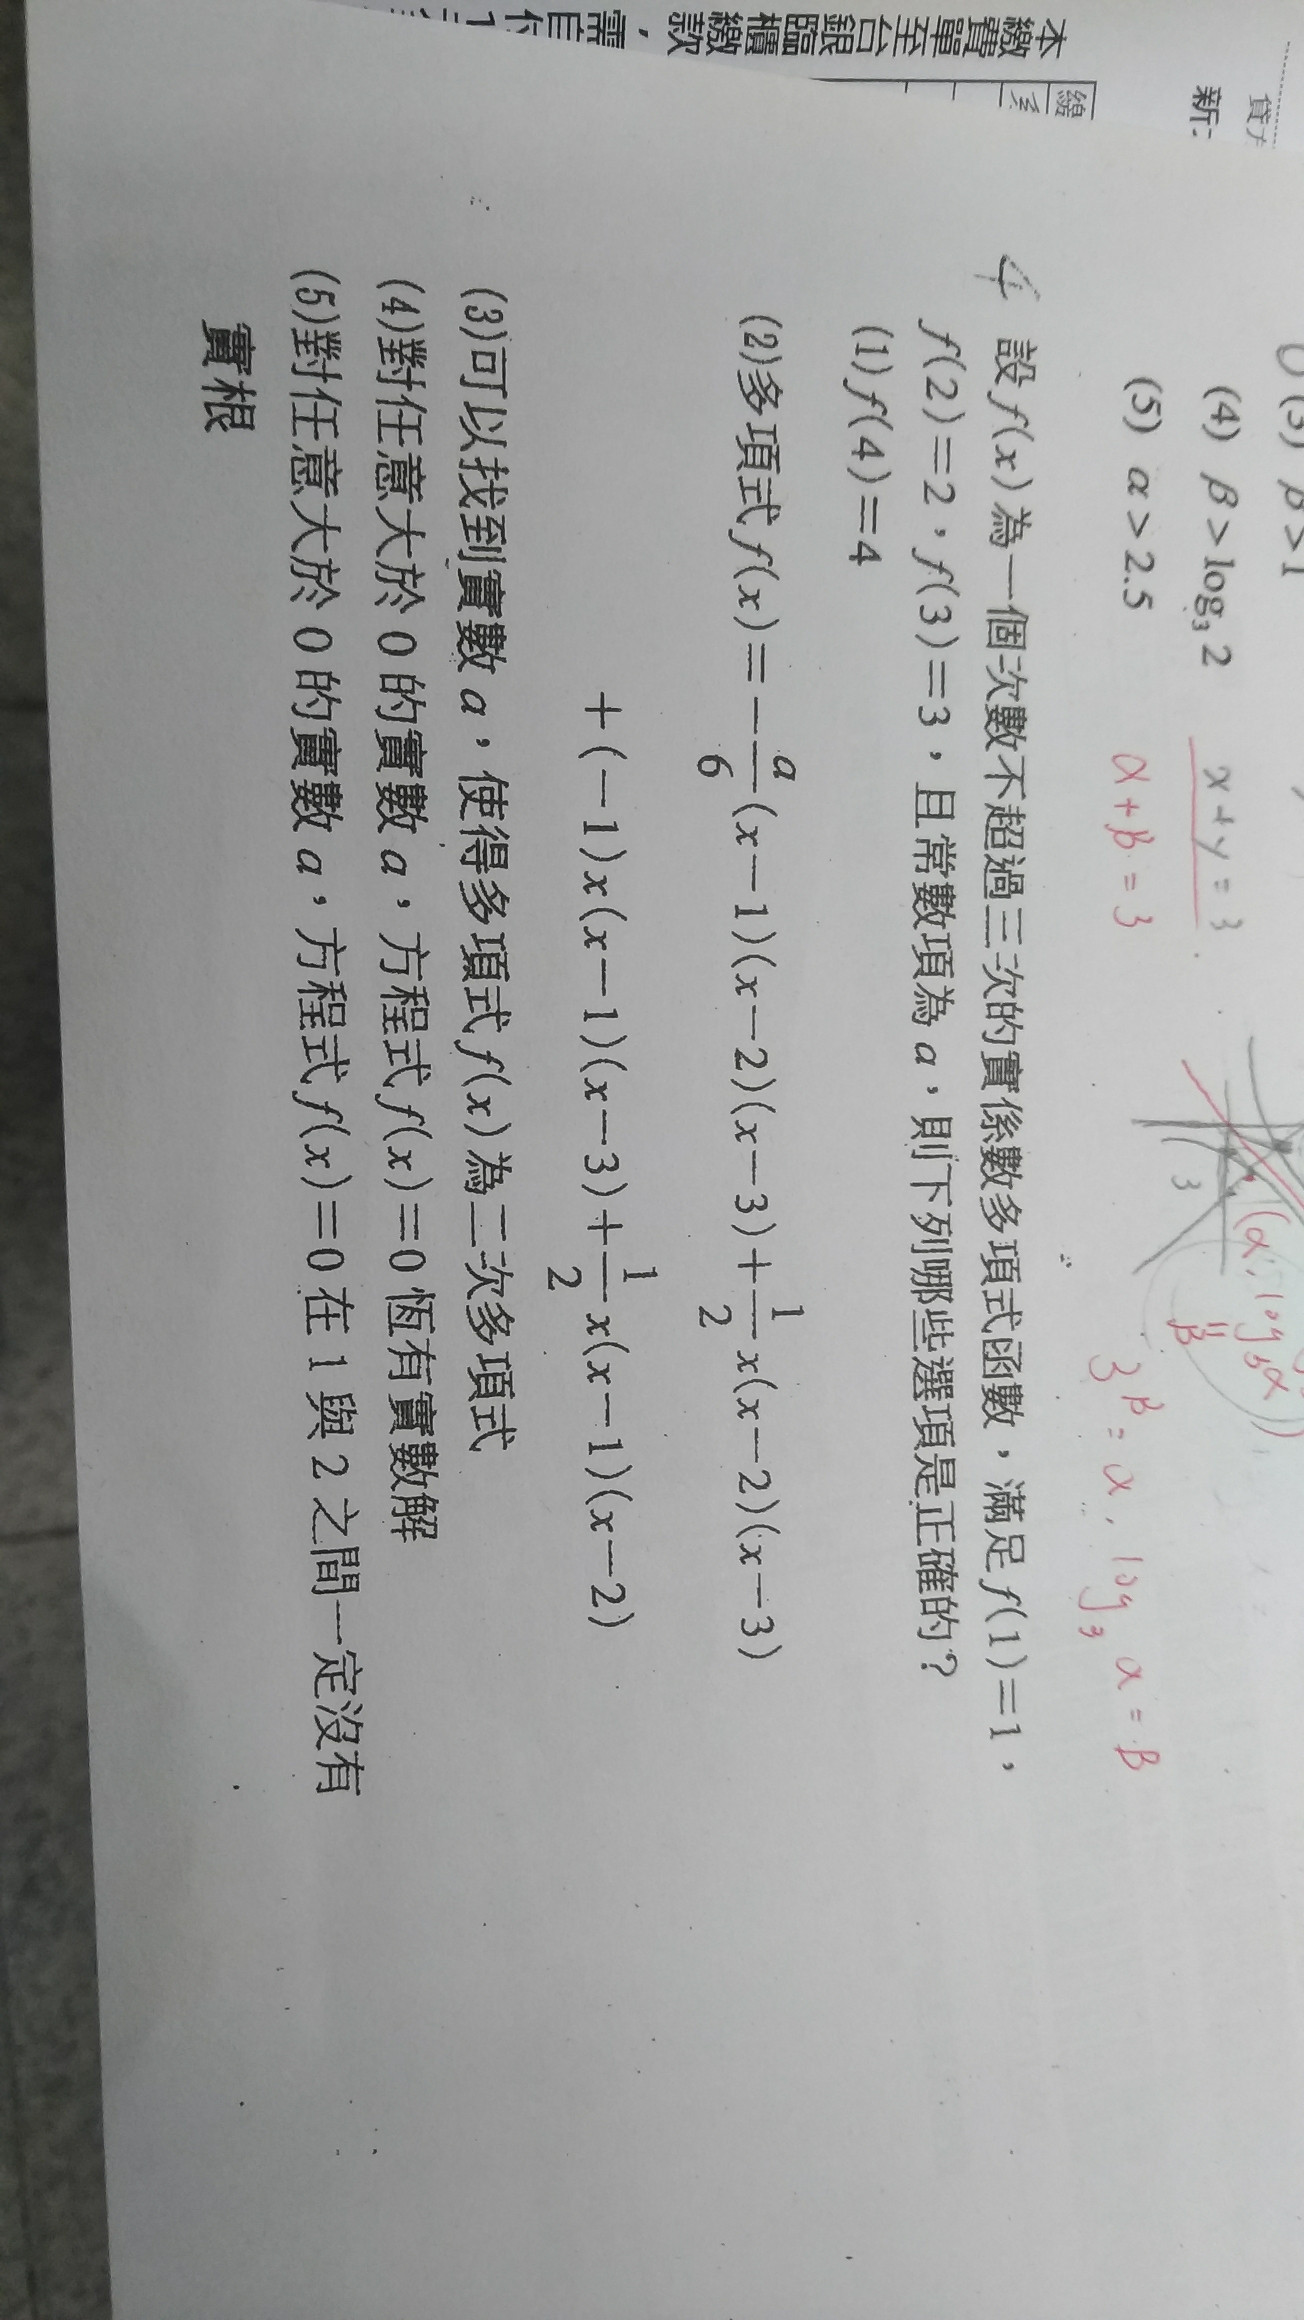 本繳費單至台銀臨櫃繳款，需自付
新
(3) β>1
(4) β>log₃2
(5) α>2.5
x+y=3
α+β=3
3
(α, log₃α)
"
β
3^β=α, log₃α=β
4 設f(x)為一個次數不超過三次的實係數多項式函數，滿足f(1)=1，
f(2)=2，f(3)=3，且常數項為a，則下列哪些選項是正確的？
(1)f(4)=4
(2)多項式f(x)=-a/6(x-1)(x-2)(x-3)+1/2x(x-2)(x-3)
+(-1)x(x-1)(x-3)+1/2x(x-1)(x-2)
(3)可以找到實數a，使得多項式f(x)為二次多項式
(4)對任意大於0的實數a，方程式f(x)=0恆有實數解
(5)對任意大於0的實數a，方程式f(x)=0在1與2之間一定沒有
實根